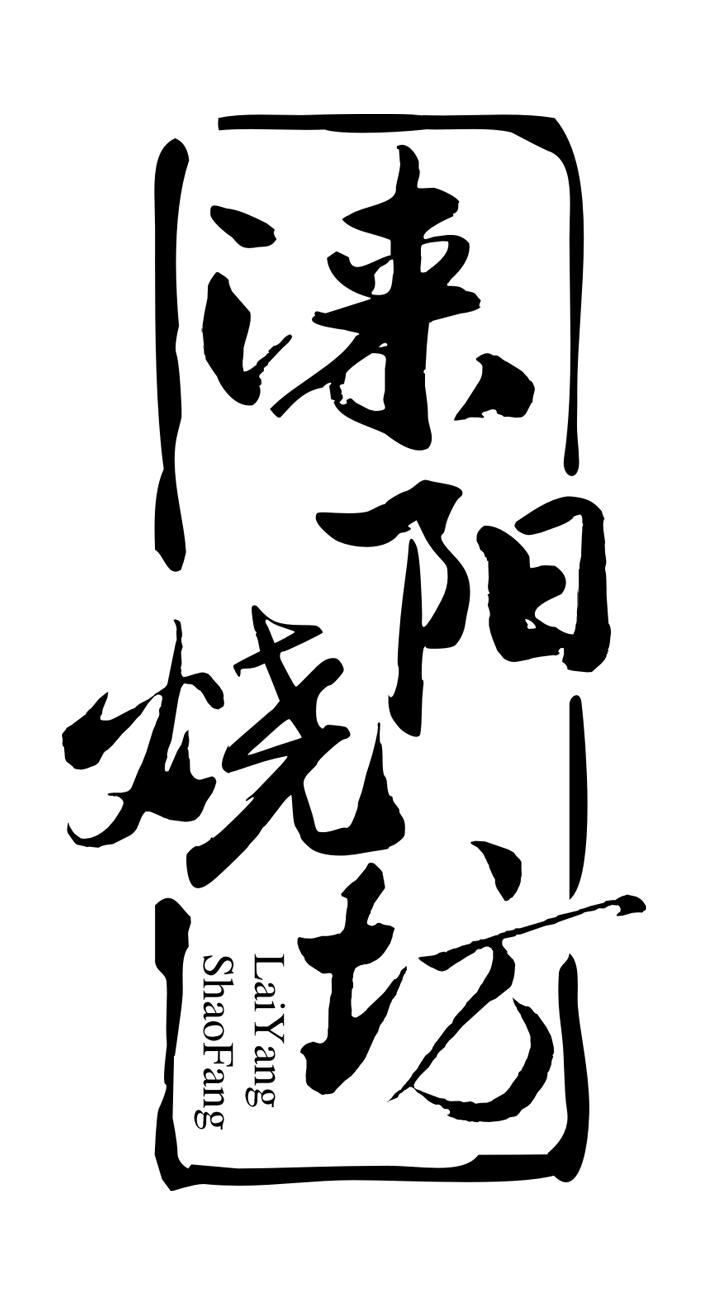 涞阳烧坊
LaiYang
ShaoFang